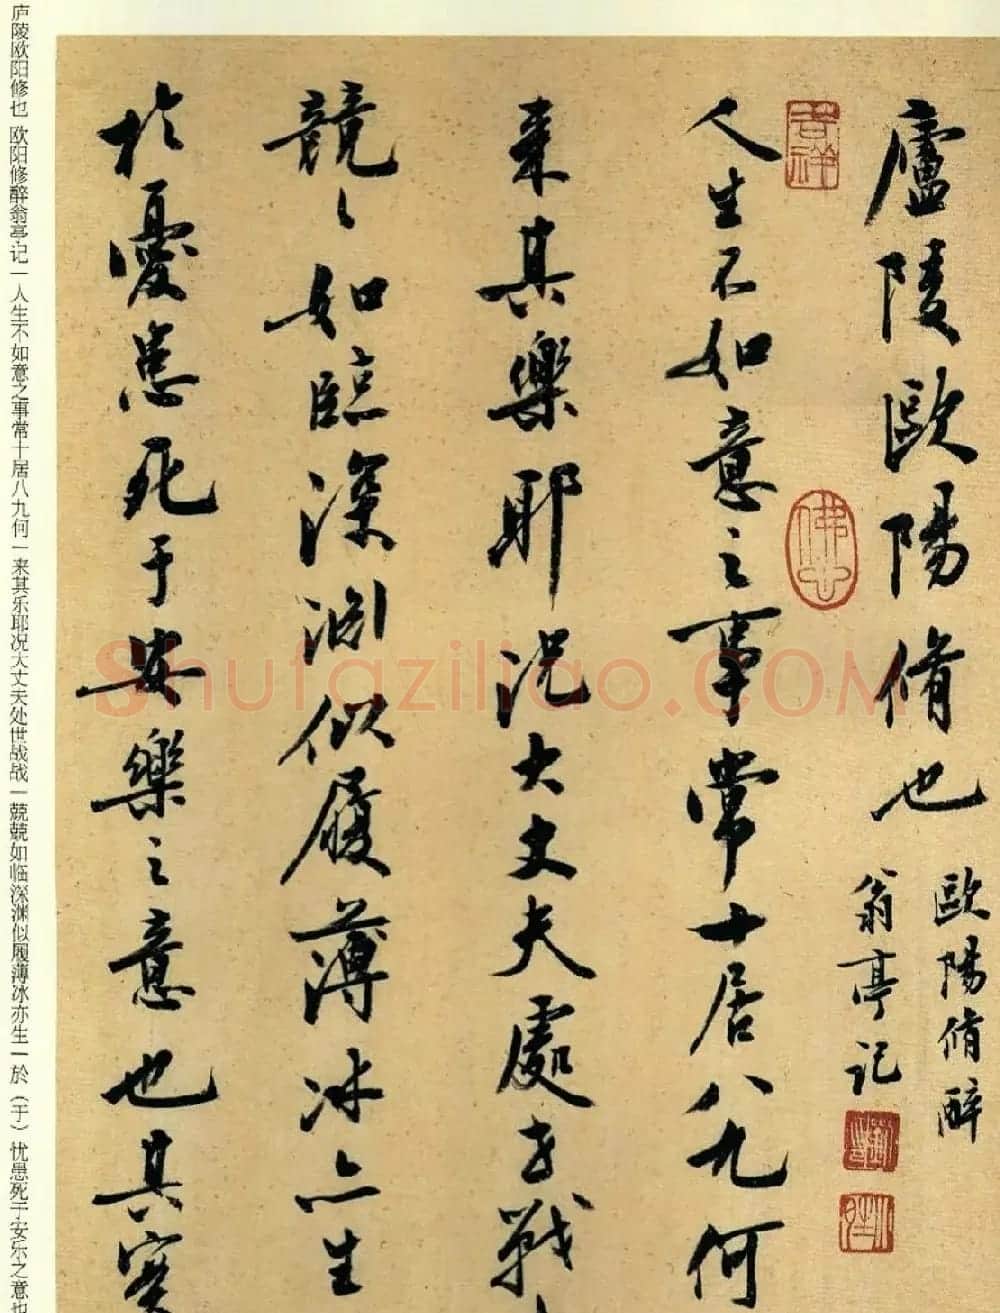 廬陵歐陽脩也
歐陽脩醉
翁亭記
人生不如意之事常十居八九何
来其樂耶况大丈夫處世戰
競々如臨深淵似履薄冰亦生
於憂患死于安樂之意也其實
庐陵欧阳修也 欧阳修醉翁亭记 | 人生不如意之事常十居八九何 | 来其乐耶况大丈夫处世战战 | 兢兢如临深渊似履薄冰亦生 | 於（于）忧患死于安乐之意也
Shufaziliao.COM